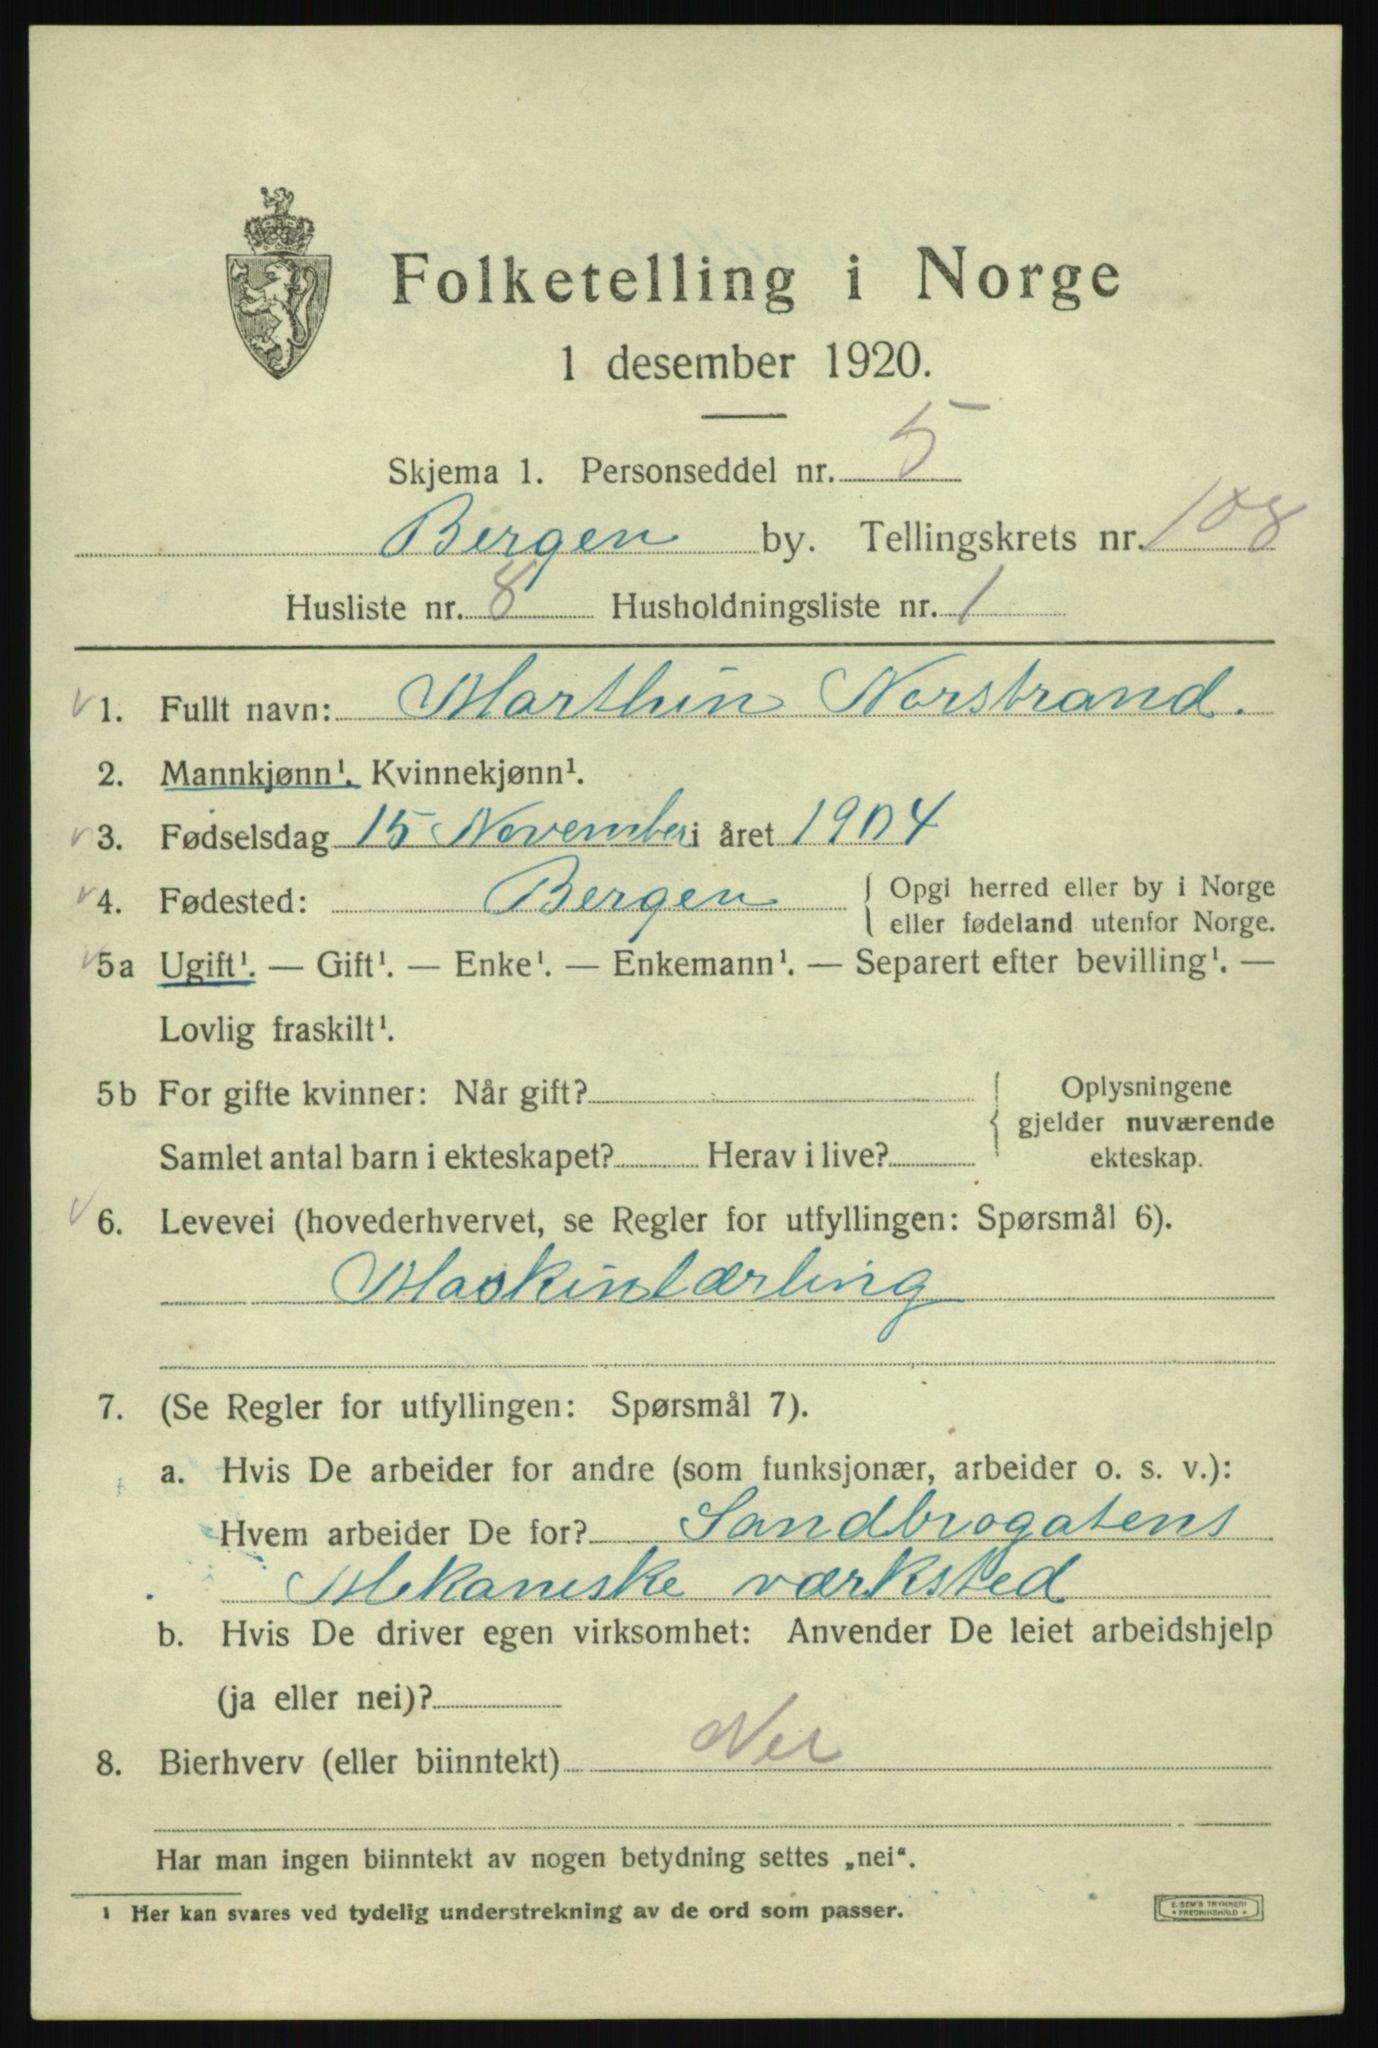 Folketelling i Norge
1 desember 1920.
Skjema 1. Personseddel nr. 5
Bergen by. Tellingskrets nr. 108
Husliste nr. 8 Husholdningsliste nr. 1
1. Fullt navn: Marthin Norstrand.
2. Mannkjønn¹. Kvinnekjønn¹.
3. Fødselsdag 15 November i året 1904
4. Fødested: Bergen { Opgi herred eller by i Norge
eller fødeland utenfor Norge.
5a Ugift¹. — Gift¹. — Enke¹. — Enkemann¹. — Separert efter bevilling¹. —
Lovlig fraskilt¹.
5b For gifte kvinner: Når gift? { Oplysningene
gjelder nuværende
Samlet antal barn i ekteskapet? Herav i live? ekteskap.
6. Levevei (hovederhvervet, se Regler for utfyllingen: Spørsmål 6).
Maskinlærling
7. (Se Regler for utfyllingen: Spørsmål 7).
a. Hvis De arbeider for andre (som funksjonær, arbeider o. s. v.):
Hvem arbeider De for? Sandbrogatens
Mekaniske værksted
b. Hvis De driver egen virksomhet: Anvender De leiet arbeidshjelp
(ja eller nei)?
8. Bierhverv (eller biinntekt) Nei
Har man ingen biinntekt av nogen betydning settes „nei“.
¹ Her kan svares ved tydelig understrekning av de ord som passer.
E. SEM'S TRYKKERI
FREDRIKSHALD